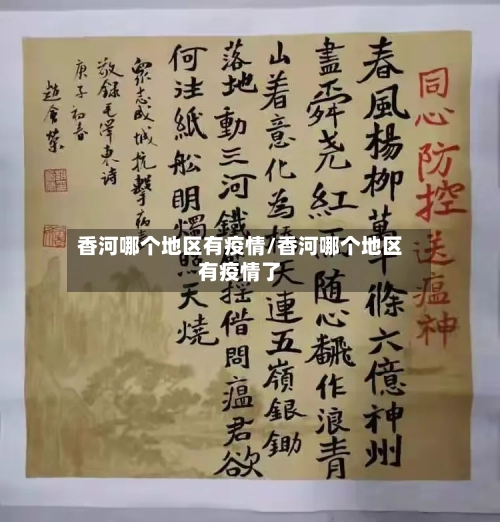 同心防控送瘟神
春風楊柳萬千條六億神州
盡舜尧紅雨随心翻作浪青
山着意化為橋天連五嶺銀鋤
落地動三河鐵摇借問瘟君欲
何注紙船明燭照天燒
眾志成城抗擊病毒
敬録毛澤東詩
庚子初春
香河哪个地区有疫情/香河哪个地区
有疫情了